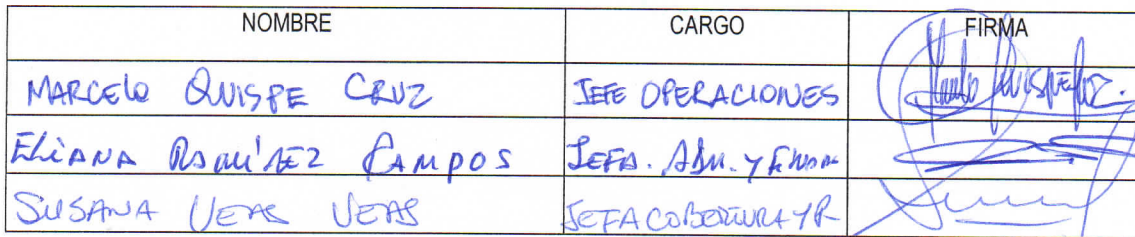 NOMBRE CARGO FIRMA
MARCELO QUISPE CRUZ JEFE OPERACIONES
ELIANA RAMÍREZ CAMPOS JEFA. ADM. Y FINAN
SUSANA VEAS VEAS JEFA COBERTURA Y R